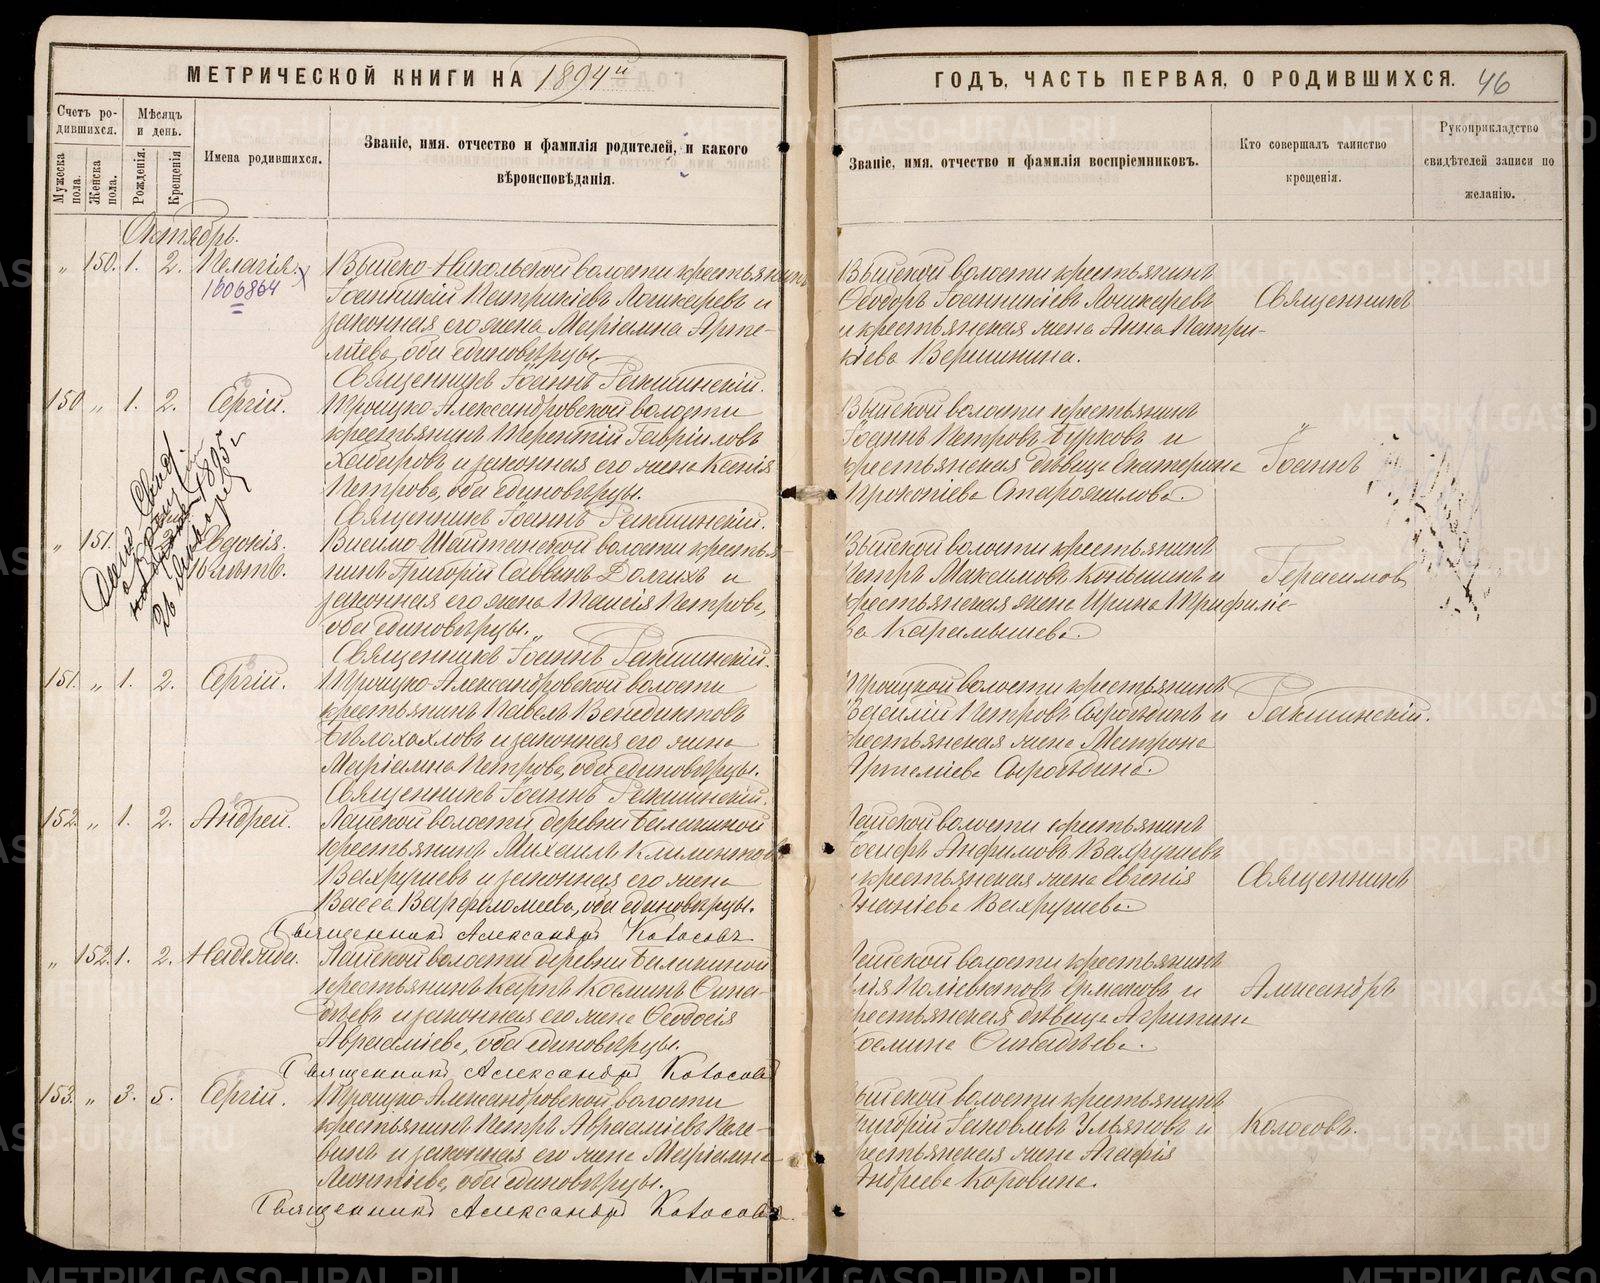 МЕТРИЧЕСКОЙ КНИГИ НА 1894й
Счетъ родившихся.
Мѣсяцъ и день.
Мужеска пола.
Женска пола.
Рожденія.
Крещенія
Имена родившихся.
Званіе, имя. отчество и фамилія родителей, и какого
вѣроисповѣданія.
Октябрь.
" 150. 1. 2. Пелагія.
1606864
Выйско-Никольской волости крестьянинъ
Іоанникій Патрикіевъ Лошкаревъ и
законная его жена Маріамна Арте-
міева, оба единовѣрцы.
Священникъ Іоаннъ Ракшинскій.
150 " 1. 2. Сергій.
Троицко-Александровской волости
крестьянинъ Терентій Гавріиловъ
Хабаровъ и законная его жена Ксенія
Петрова, оба единовѣрцы.
Священникъ Іоаннъ Ракшинскій.
" 151. Евдокія.
Висимо-Шайтанской волости крестья-
нинъ Григорій Саввинъ Долгихъ и
законная его жена Таисія Петрова,
оба единовѣрцы.
Священникъ Іоаннъ Ракшинскій.
26 1895 г
151. " 1. 2. Сергій.
Троицко-Александровской волости
крестьянинъ Павелъ Венедиктовъ
Бѣлохохловъ и законная его жена
Маріамна Петрова, оба единовѣрцы.
Священникъ Іоаннъ Ракшинскій.
152. " 1. 2. Андрей.
Лайской волости деревни Балакиной
крестьянинъ Михаилъ Климентовъ
Вахрушевъ и законная его жена
Васса Варфоломеева, оба единовѣрцы.
Священникъ Александръ Колосовъ
" 152. 1. 2. Надежда.
Лайской волости деревни Балакиной
крестьянинъ Карпъ Козминъ Сина-
дѣевъ и законная его жена Ѳеодосія
Авраамiева, оба единовѣрцы.
Священникъ Александръ Колосовъ
153. " 3. 5. Сергій.
Троицко-Александровской волости
крестьянинъ Петръ Авраамiевъ Пеле-
винъ и законная его жена Маріамна
Леонтіева, оба единовѣрцы.
Священникъ Александръ Колосовъ.
ГОДЪ, ЧАСТЬ ПЕРВАЯ, О РОДИВШИХСЯ. 46
Званіе, имя. отчество и фамилія воспріемниковъ.
Кто совершалъ таинство
крещенія.
Рукоприкладство
свидѣтелей записи по
желанію.
Выйской волости крестьянинъ
Ѳеодоръ Іоанникіевъ Лошкаревъ
и крестьянская жена Анна Патри-
кіева Вершинина.
Выйской волости крестьянинъ
Іоаннъ Петровъ Бурковъ и
крестьянская дѣвица Екатерина
Прокопіева Старошилова.
Выйской волости крестьянинъ
Петръ Максимовъ Конышинъ и
крестьянская жена Ирина Трифилiе-
ва Карамышева.
Троицкой волости крестьянинъ
Василій Петровъ Сыроѣдинъ и
крестьянская жена Матрона
Артеміева Сыроѣдина.
Лайской волости крестьянинъ
Іосифъ Анфимовъ Вахрушевъ
и крестьянская жена Евгенія
Ананіева Вахрушева.
Лайской волости крестьянинъ
Илія Поліевктовъ Ермаковъ и
крестьянская дѣвица Агрипина
Козмина Синадѣева.
Выйской волости крестьянинъ
Григорій Іаковлевъ Ульяновъ и
крестьянская жена Агафія
Андреева Коровина.
Священникъ
Іоаннъ
Герасимовъ
Ракшинскій.
Священникъ
Александръ
Колосовъ.
METRIKI.GASO-URAL.RU